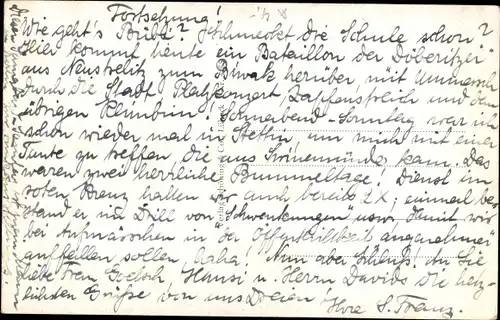 Fortsetzung!
Wie geht's Bübi? Schmeckt die Schule schon?
Hier kommt heute ein Bataillon der Döberitzer
aus Neustrelitz zum Biwak herüber mit Ummarsch
durch die Stadt Platzkonzert Zapfenstreich und dem
übrigen Klimbim! Sonnabend-Sonntag war ich
schon wieder mal in Stettin um mich mit einer
Tante zu treffen, die aus Swinemünde kam. Das
waren zwei herrliche Bummeltage! Dienst im
roten Kreuz hatten wir auch bereits 2x; einmal be-
stand er in Drill von "Schwenkungen" usw. damit wir
bei Aufmärschen in der Öffentlichkeit "angenehm"
auffallen sollen, haha! Nun aber Schluß. An Sie
liebe Frau Hansi u. Herrn Davids die herz-
lichsten Grüße von uns Dreien! Ihre S. Franz.